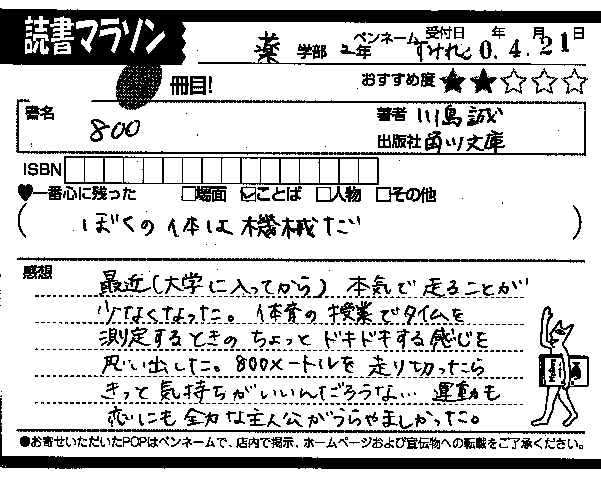 読書マラソン
薬 学部 2年 ペンネーム すけれど 受付日 0年 4月 21日
冊目!
おすすめ度 ★★☆☆☆
書名 800
著者 川島誠
出版社 角川文庫
ISBN
♥一番心に残った □場面 ☑ことば □人物 □その他
(ぼくの体は機械だ)
感想
最近(大学に入ってから)本気で走ることが
少なくなった。体育の授業でタイムを
測定するときのちょっとドキドキする感じを
思い出した。800メートルを走り切ったら
きっと気持ちがいいんだろうな… 運動も
恋にも全力な主人公がうらやましかった。
●お寄せいただいたPOPはペンネームで、店内で掲示、ホームページおよび宣伝物への転載をご了承ください。